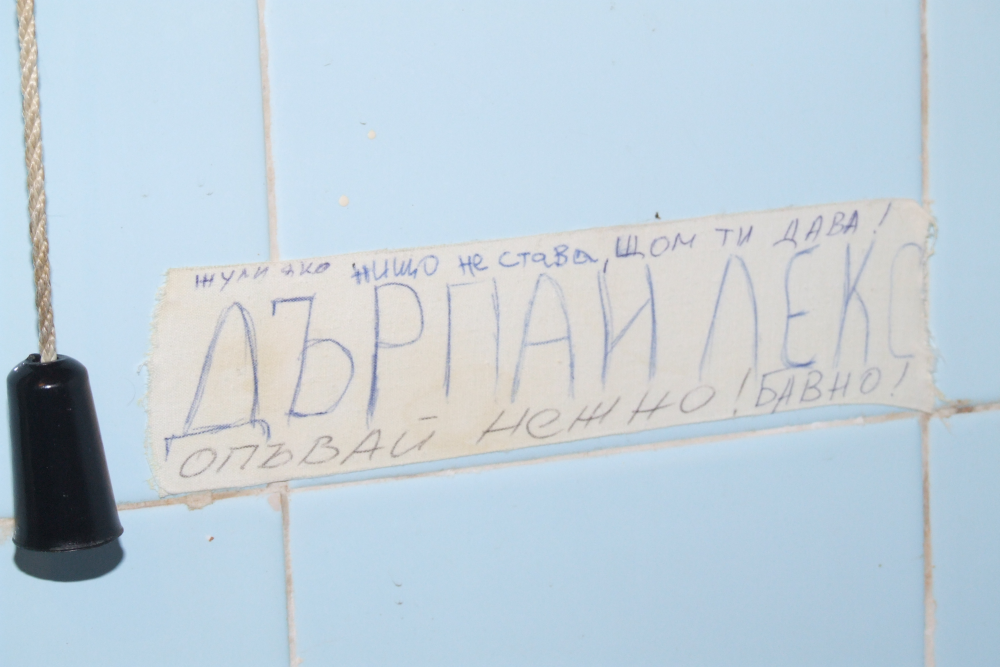 жули яко нищо не става, щом ти дава!
ДЪРПАЙ ЛЕКО
ОПЪВАЙ НЕЖНО! БАВНО!